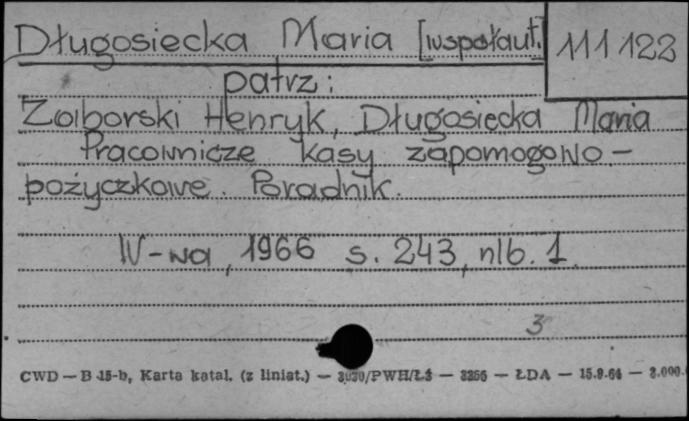 Długosiecka Maria [współaut.] 111 123
patrz:
Zaiborski Henryk, Długosiecka Maria
Pracownicze kasy zapomogowo-
pożyczkowe. Poradnik.
W-wa, 1966 s. 243, nlb. 1.
3
CWD — B 15-b, Karta katal. (z liniat.) — — 3266 — ŁDA — 15.9.64 — 3.000.